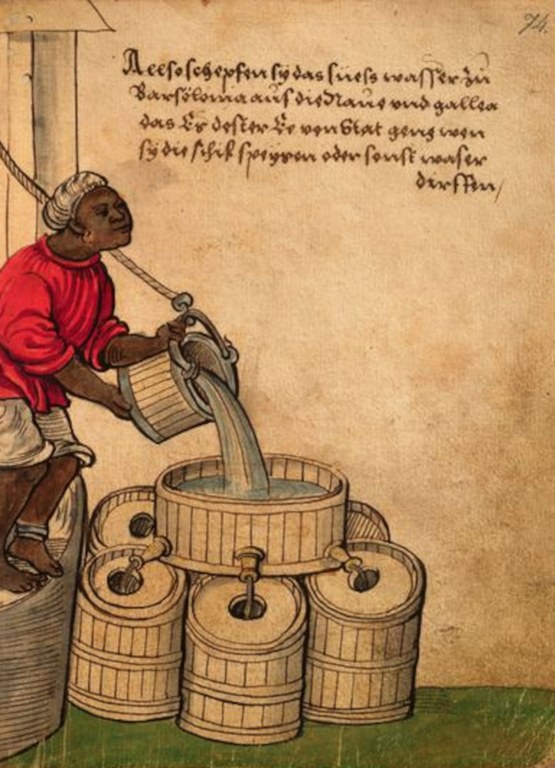 74.
Allso schepfen sy das suess wasser zu
Barsolonia aus die Naue und gallea
das Er dester Ee von Stat geng wen
sy die schif speysen oder sonst waser
dirffen